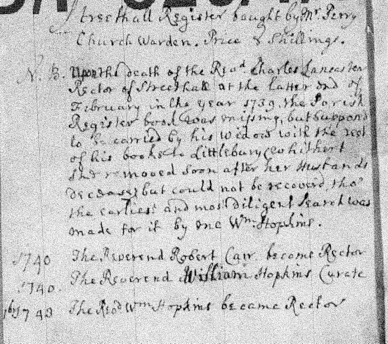 Streethall Register bought by Mr. Perry
Church Warden, Price 8 Shillings.
N. B. Upon the death of the Revd. Charles Lancaster
Rector of Streethall at the latter end of
February in the year 1739, the Parish
Register book was missing, but supposed
to be carried by his widow with the rest
of his books to Littlebury (whither
she removed soon after her Husbands
decease) but could not be recoverd, tho'
the earliest and most diligent search was
made for it by one Wm. Hopkins.
1740 The Reverend Robert became Rector
1740. The Reverend William Hopkins Curate
1743 The Revd Wm Hopkins became Rector